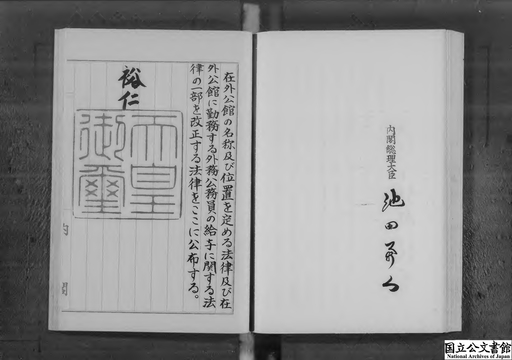 内閣総理大臣
池田勇人
在外公館の名称及び位置を定める法律及び在
外公館に勤務する外務公務員の給与に関する法
律の一部を改正する法律をここに公布する。
裕仁
天皇
御璽
内閣
国立公文書館
National Archives of Japan